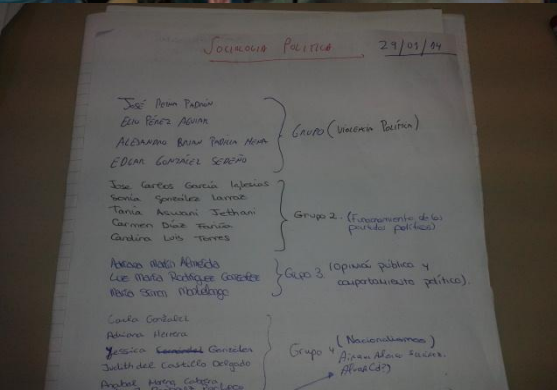 SOCIOLOGIA POLITICA 29/03/14
JOSÉ PADRÓN
ELIO PÉREZ AGUIAR
ALEJANDRO BRIAN PADILLA MENA
EDGAR GONZÁLEZ SEDEÑO
GRUPO (VIOLENCIA POLÍTICA)
Jose Carlos García Iglesias
Sonia González Larraz
Tania Aswani Jethani
Carmen Díaz Fariña
Carolina Luis Torres
Grupo 2. (Funcionamiento de los
partidos políticos)
Adriana Martín Almeida
Luz María Rodríguez González
María
Grupo 3. (Opinión pública y
comportamiento político).
Carla
Adriana Herrera
Yessica González
Judith del Castillo Delgado
Anabel Cabrera
Grupo 4 (Nacionalismos)